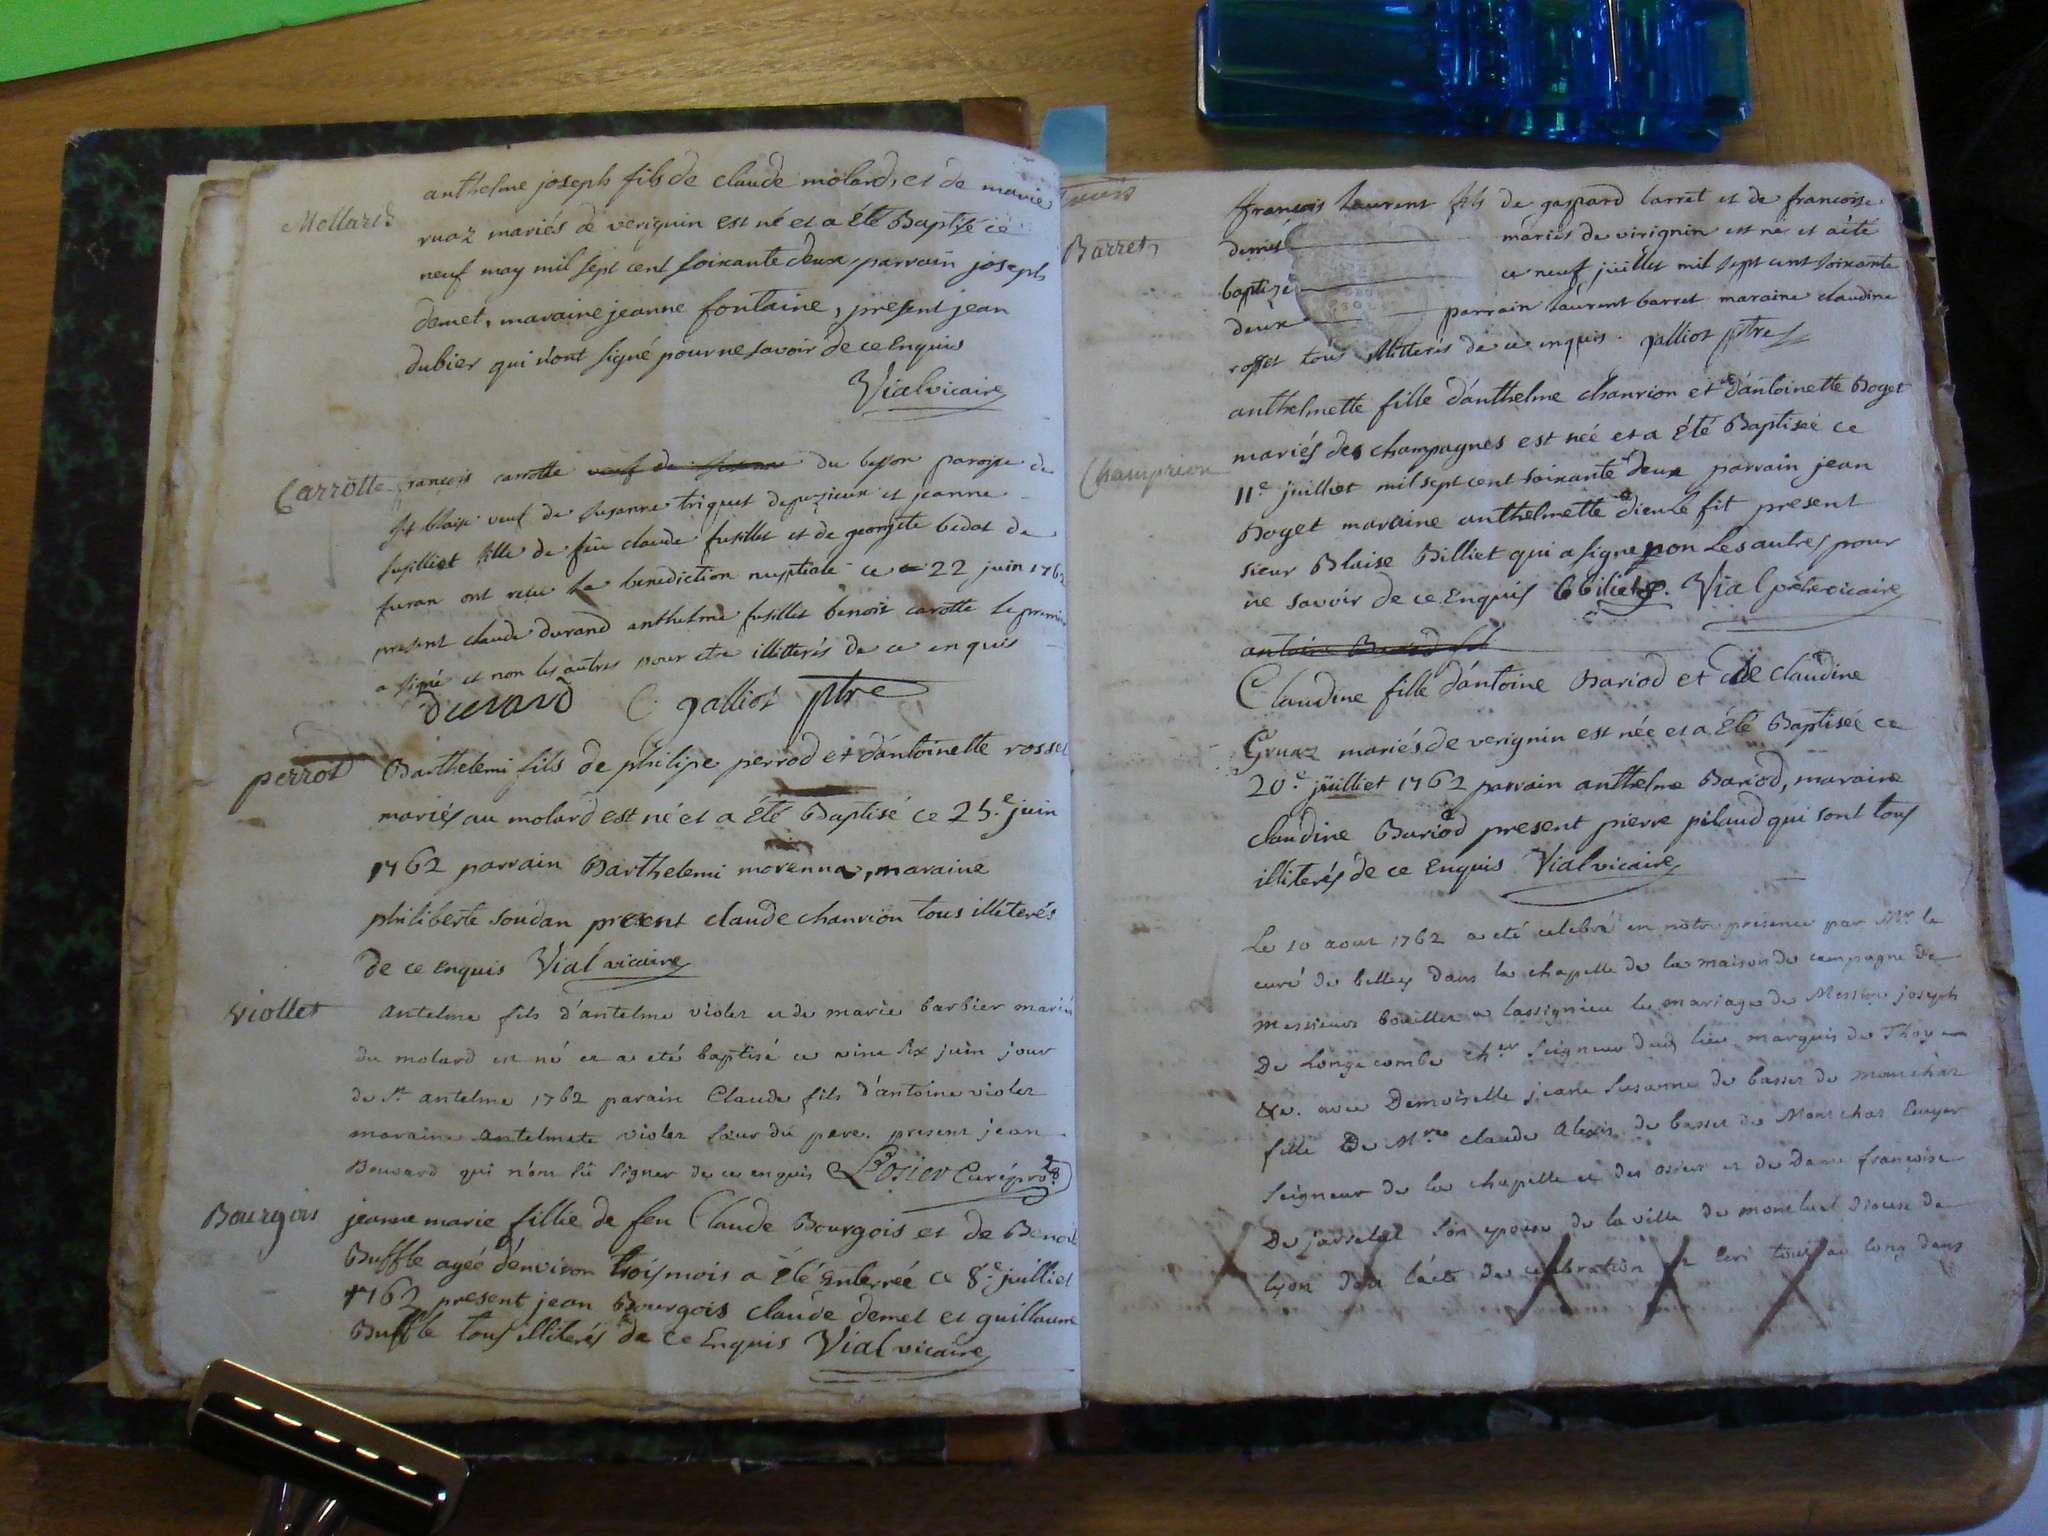 Mollard
anthelme joseph fils de claude molard, et de marie
ruaz mariés de verignin est né et a été Baptisé ce
neuf may mil sept cent soixante deux, parrain joseph
demet, maraine jeanne fontaine, present jean
dubier qui n'ont signé pour ne savoir de ce Enquis
Vial vicaire
Carrotte
françois carrotte veuf de susanne du besson paroisse de
St blaise veuf de susanne triquet de et jeanne
fusilliet fille de feu claude fusillet et de georgete bedat de
furan ont receu la benediction nuptiale ce 22 juin 1762
present claude durand anthelme fusillet benoit carotte le premier
a signé et non les autres pour etre illitterés de ce enquis
Durand C. galliot ptre
perrod
Barthelemi fils de philipe perrod et d'antoinette rosset
mariés au molard est né et a été Baptisé ce 25e juin
1762 parrain Barthelemi morenna, maraine
philiberte soudan present claude chanrion tous illiterés
de ce enquis Vial vicaire
Viollet
Antelme fils d'antelme violet et de marie barbier mariés
du molard est né et a eté baptisé ce vint six juin jour
de St antelme 1762 parain Claude fils d'antoine violet
maraine antelmete violet sœur du pere. present jean
Bouvard qui n'ont sû signer de ce enquis Losier Curé
Bourgois
jeanne marie fillie de feu Claude Bourgois et de Benoite
Buffle agée d'environ trois mois a été Enterrée ce 8e juilliet
1762 present jean Bourgois claude demet et guillaume
Buffle tous illiterés de ce Enquis Vial vicaire
Barret
françois laurent fils de gaspard barret et de francoise
demet mariés de virignin est né et aété
baptizé ce neuf juillet mil sept cent soixante
deux parrain laurent barret maraine claudine
rosset tous illitterés de ce enquis. galliot ptre
Champrion
anthelmette fille d'anthelme chanrion et d'antoinette Boget
mariés des champagnes est née et a été Baptisée ce
11e juilliet mil sept cent soixante deux parrain jean
Boget maraine anthelmette dieu le fit present
sieur Blaise Billiet qui a signe non les autres pour
ne savoir de ce Enquis Bbiliet. Vial prêtre vicaire
antoine Bariod fil
Claudine fille d'antoine Bariod et de claudine
Gruaz mariés de verignin est née et a été Baptisée ce
20e juilliet 1762 parrain anthelme Bariod, maraine
claudine Bariod present pierre pilaud qui sont tous
illiterés de ce Enquis Vial vicaire
Le 10 aout 1762 a eté celebré en nôtre presence par Mr le
curé de belley dans la chapelle de la maison de campagne de
messieurs bouillet a lassignieu le mariage de Messire joseph
De Longecombe cher seigneur dud lieu marquis de Thoy
&c. avec Demoiselle jeane susanne de basset de montchat
fille De Mre claude Alexis de basset de Montchat Ecuyer
seigneur de la chapelle et des osieres et de Dame françoise
De son epouse de la ville de montluel diocese de
Lyon dont l'acte de celebration est ecri tout au long dans